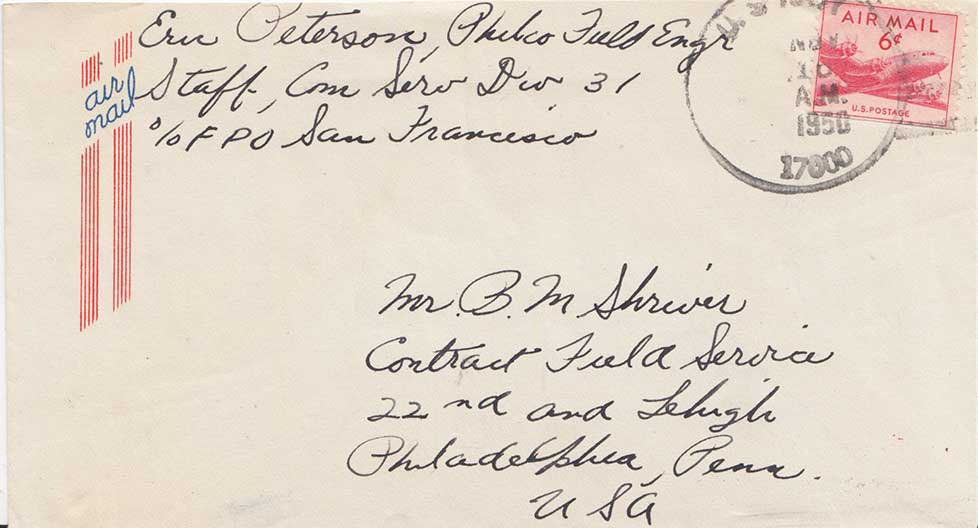 Eric Peterson, Philco Field Engr
Staff, Com Serv Div 31
℅ FPO San Francisco
air
mail
U.S.
AIR MAIL
6¢
U.S. POSTAGE
A.M.
1950
17000
Mr. B. M Shriver
Contract Field Service
22nd and Lehigh
Philadelphia, Penn.
USA